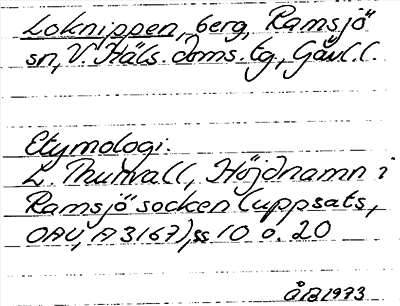 Loknippen, berg, Ramsjö
sn, V. Häls. doms. tg, Gävl. l.
Etymologi:
L. Thunvall, Höjdnamn i
Ramsjö socken (uppsats,
OAU, A 3167), ss 10 o. 20
ÅB 1973